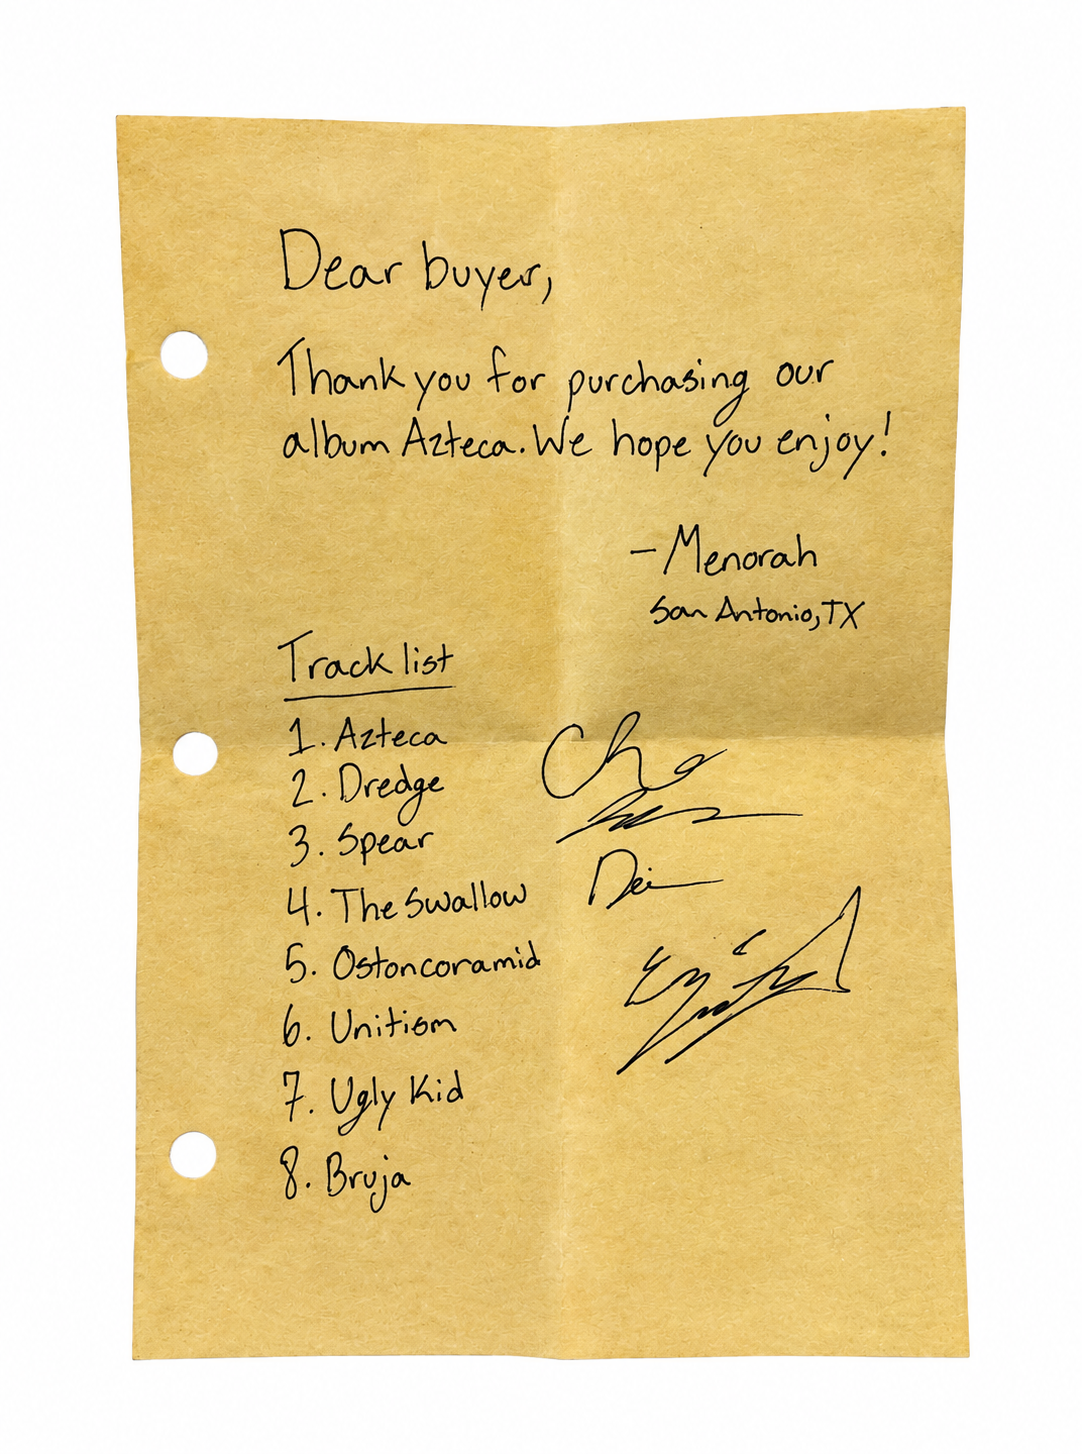 Dear buyer,
Thank you for purchasing our
album Azteca. We hope you enjoy!
- Menorah
San Antonio, TX
Track list
1. Azteca
2. Dredge
3. Spear
4. The Swallow
5. Ostoncoramid
6. Unitism
7. Ugly Kid
8. Bruja